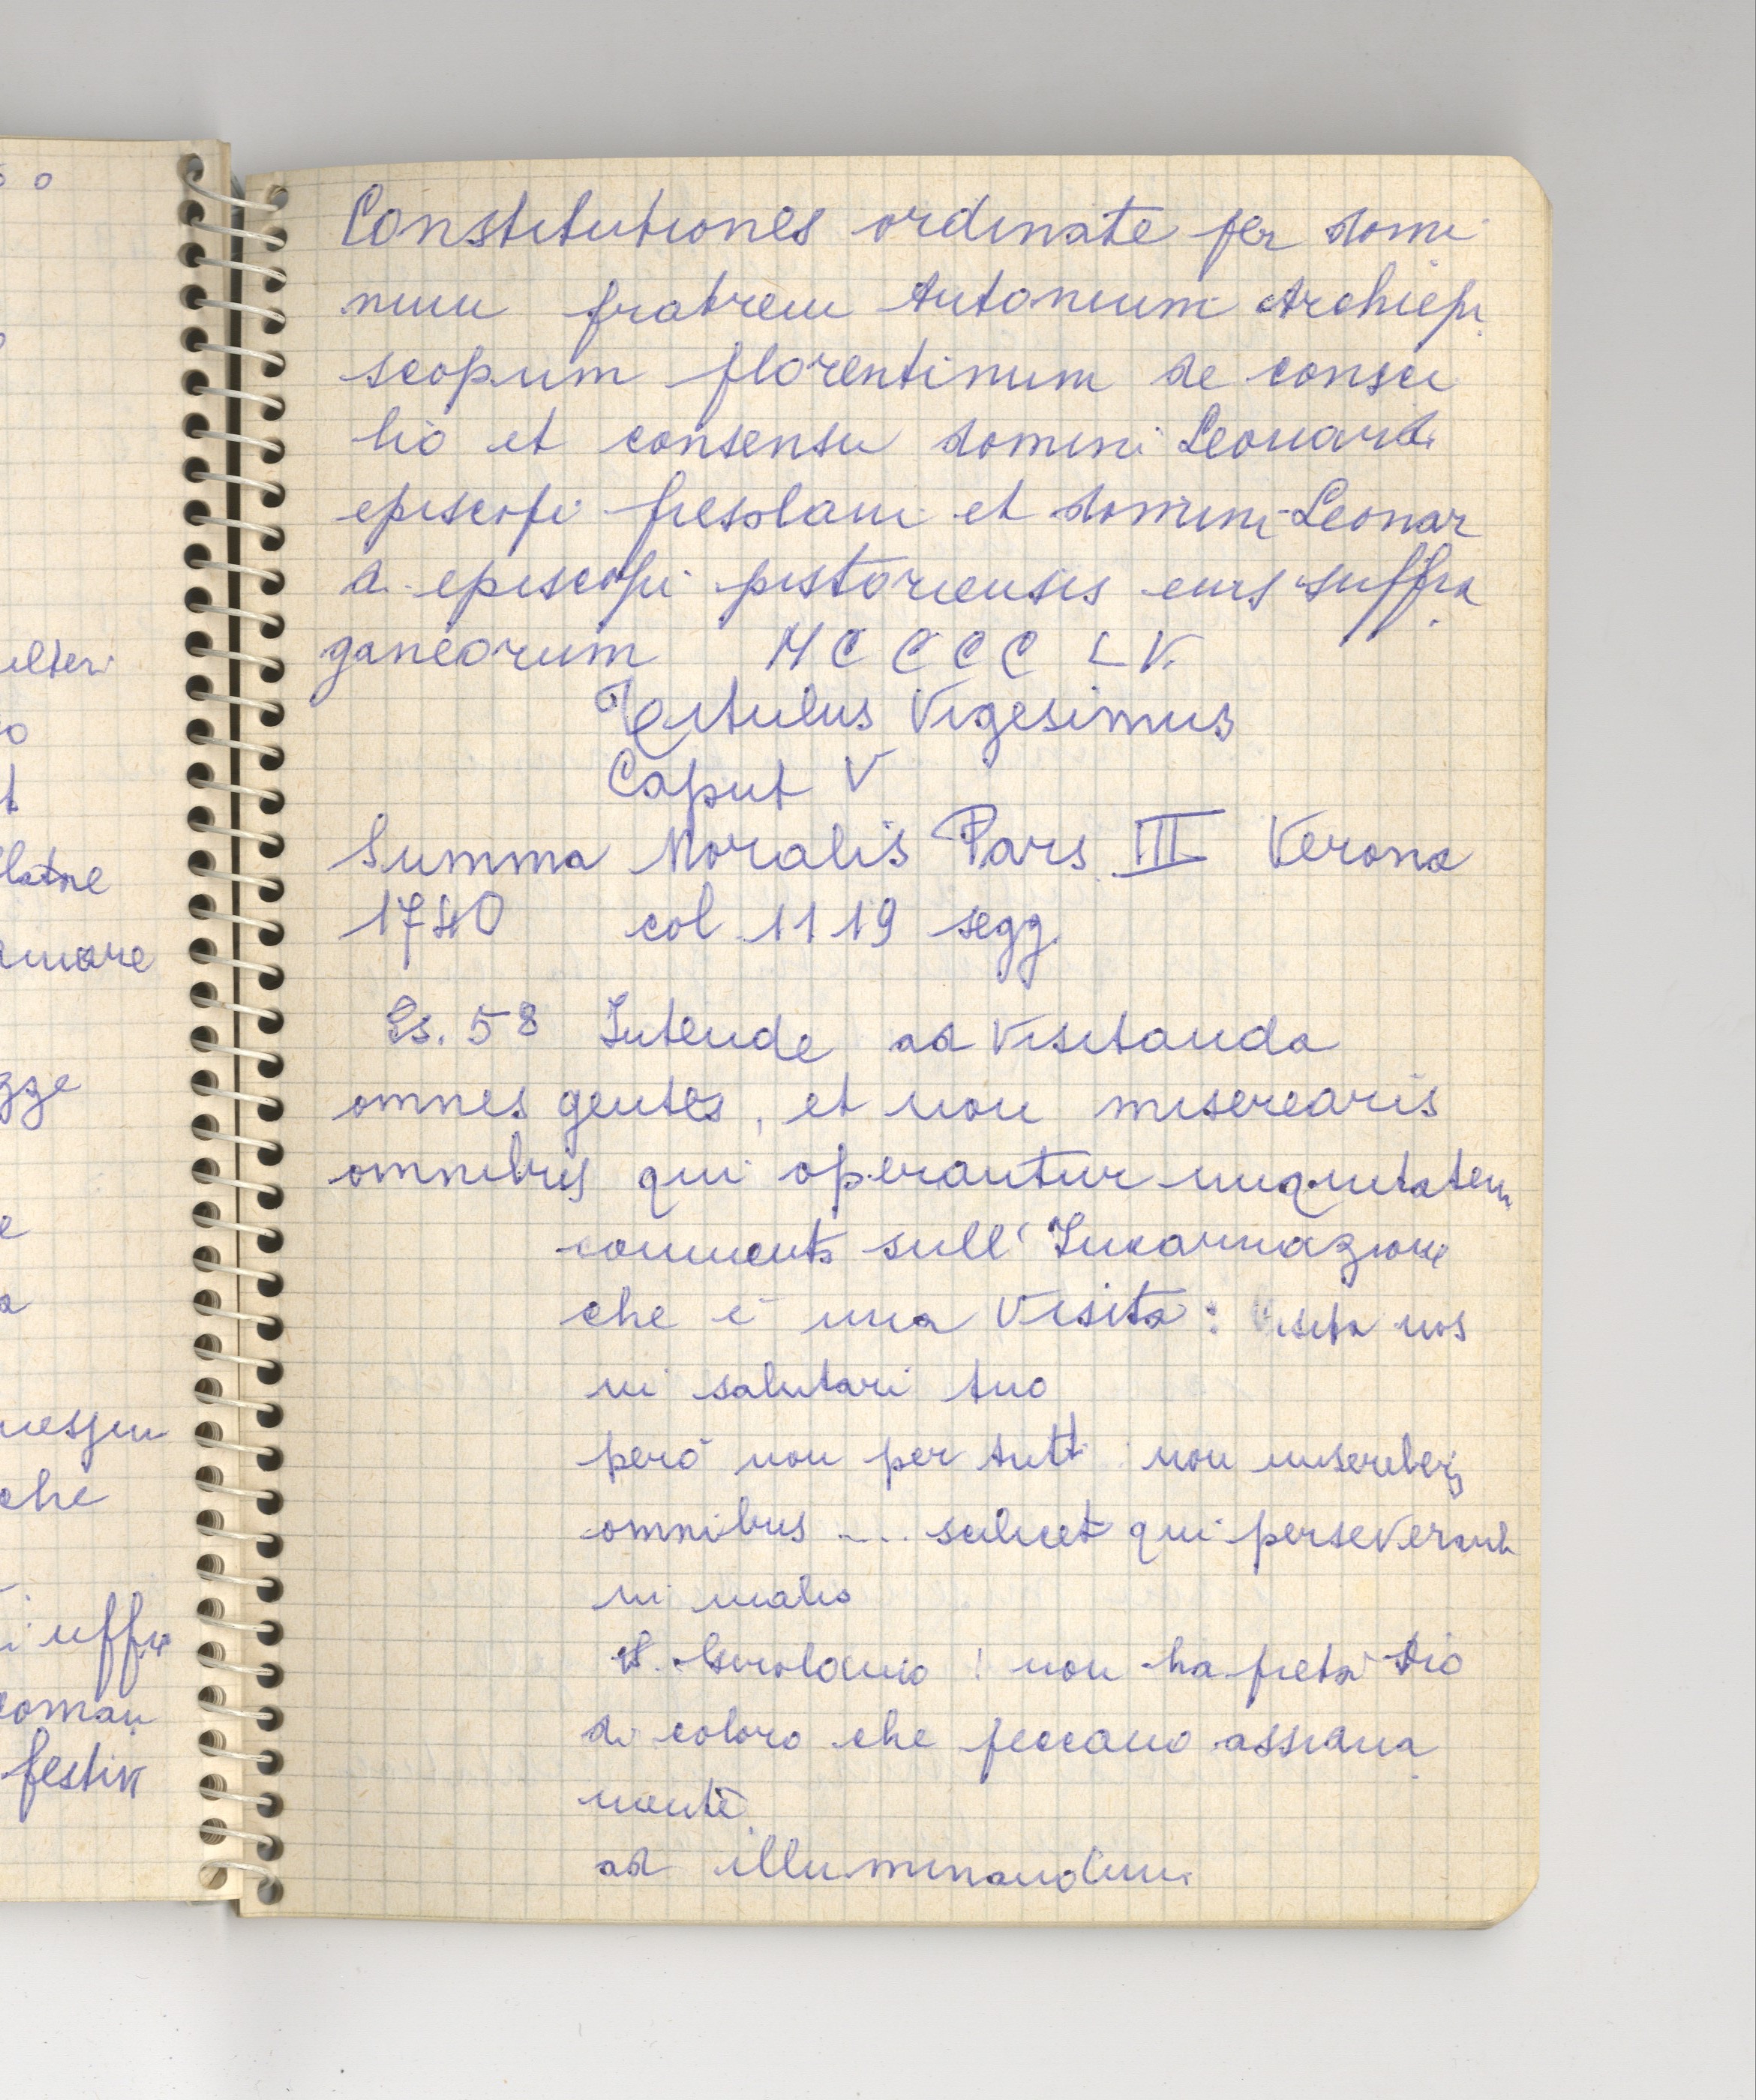 Constitutiones ordinate per domi
num fratrem Antonium Archiepi
scopum florentinum de consci
lio et consensu domini Leonardi
episcopi fiesolani et domini Leonar
di episcopi pistoriensis eius suffra
ganeorum MCCCC LV.
Titulus Vigesimus
Caput V
Summa Moralis Pars III Verona
1740 col 1119 segg.
Ps. 58 Intende ad visitanda
omnes gentes, et non miserearis
omnibus qui operantur iniquitatem
commenta sull'Incarnazione
che è una Visita: Visita nos
in salutari tuo
però non per tutti: non misereberis
omnibus .... scilicet qui perseverant
in malo
S. Girolamo: non ha pietà Dio
di coloro che peccano assidua
mente.
ad illuminandum
60
ulteri
o
t
amare
gge
e
a
che
i uffi
festiv